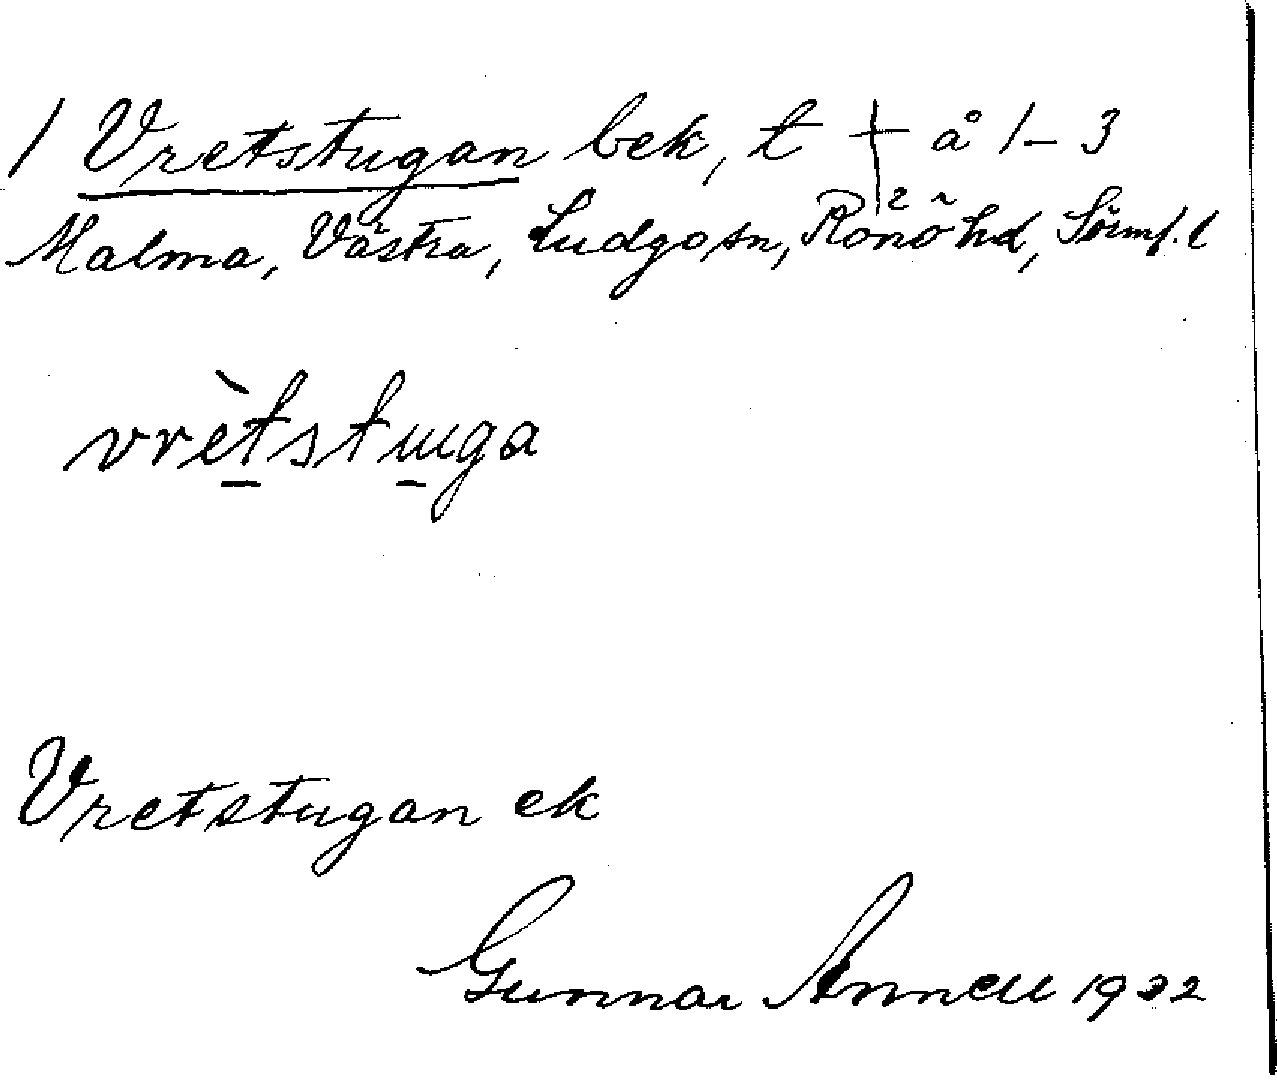 1 Vretstugan bek, t + å 1–3
Malma, Västra, Ludgo sn, Rönö hd, Sörml. l
vrètstuga
Vretstugan ek
Gunnar Annell 1932